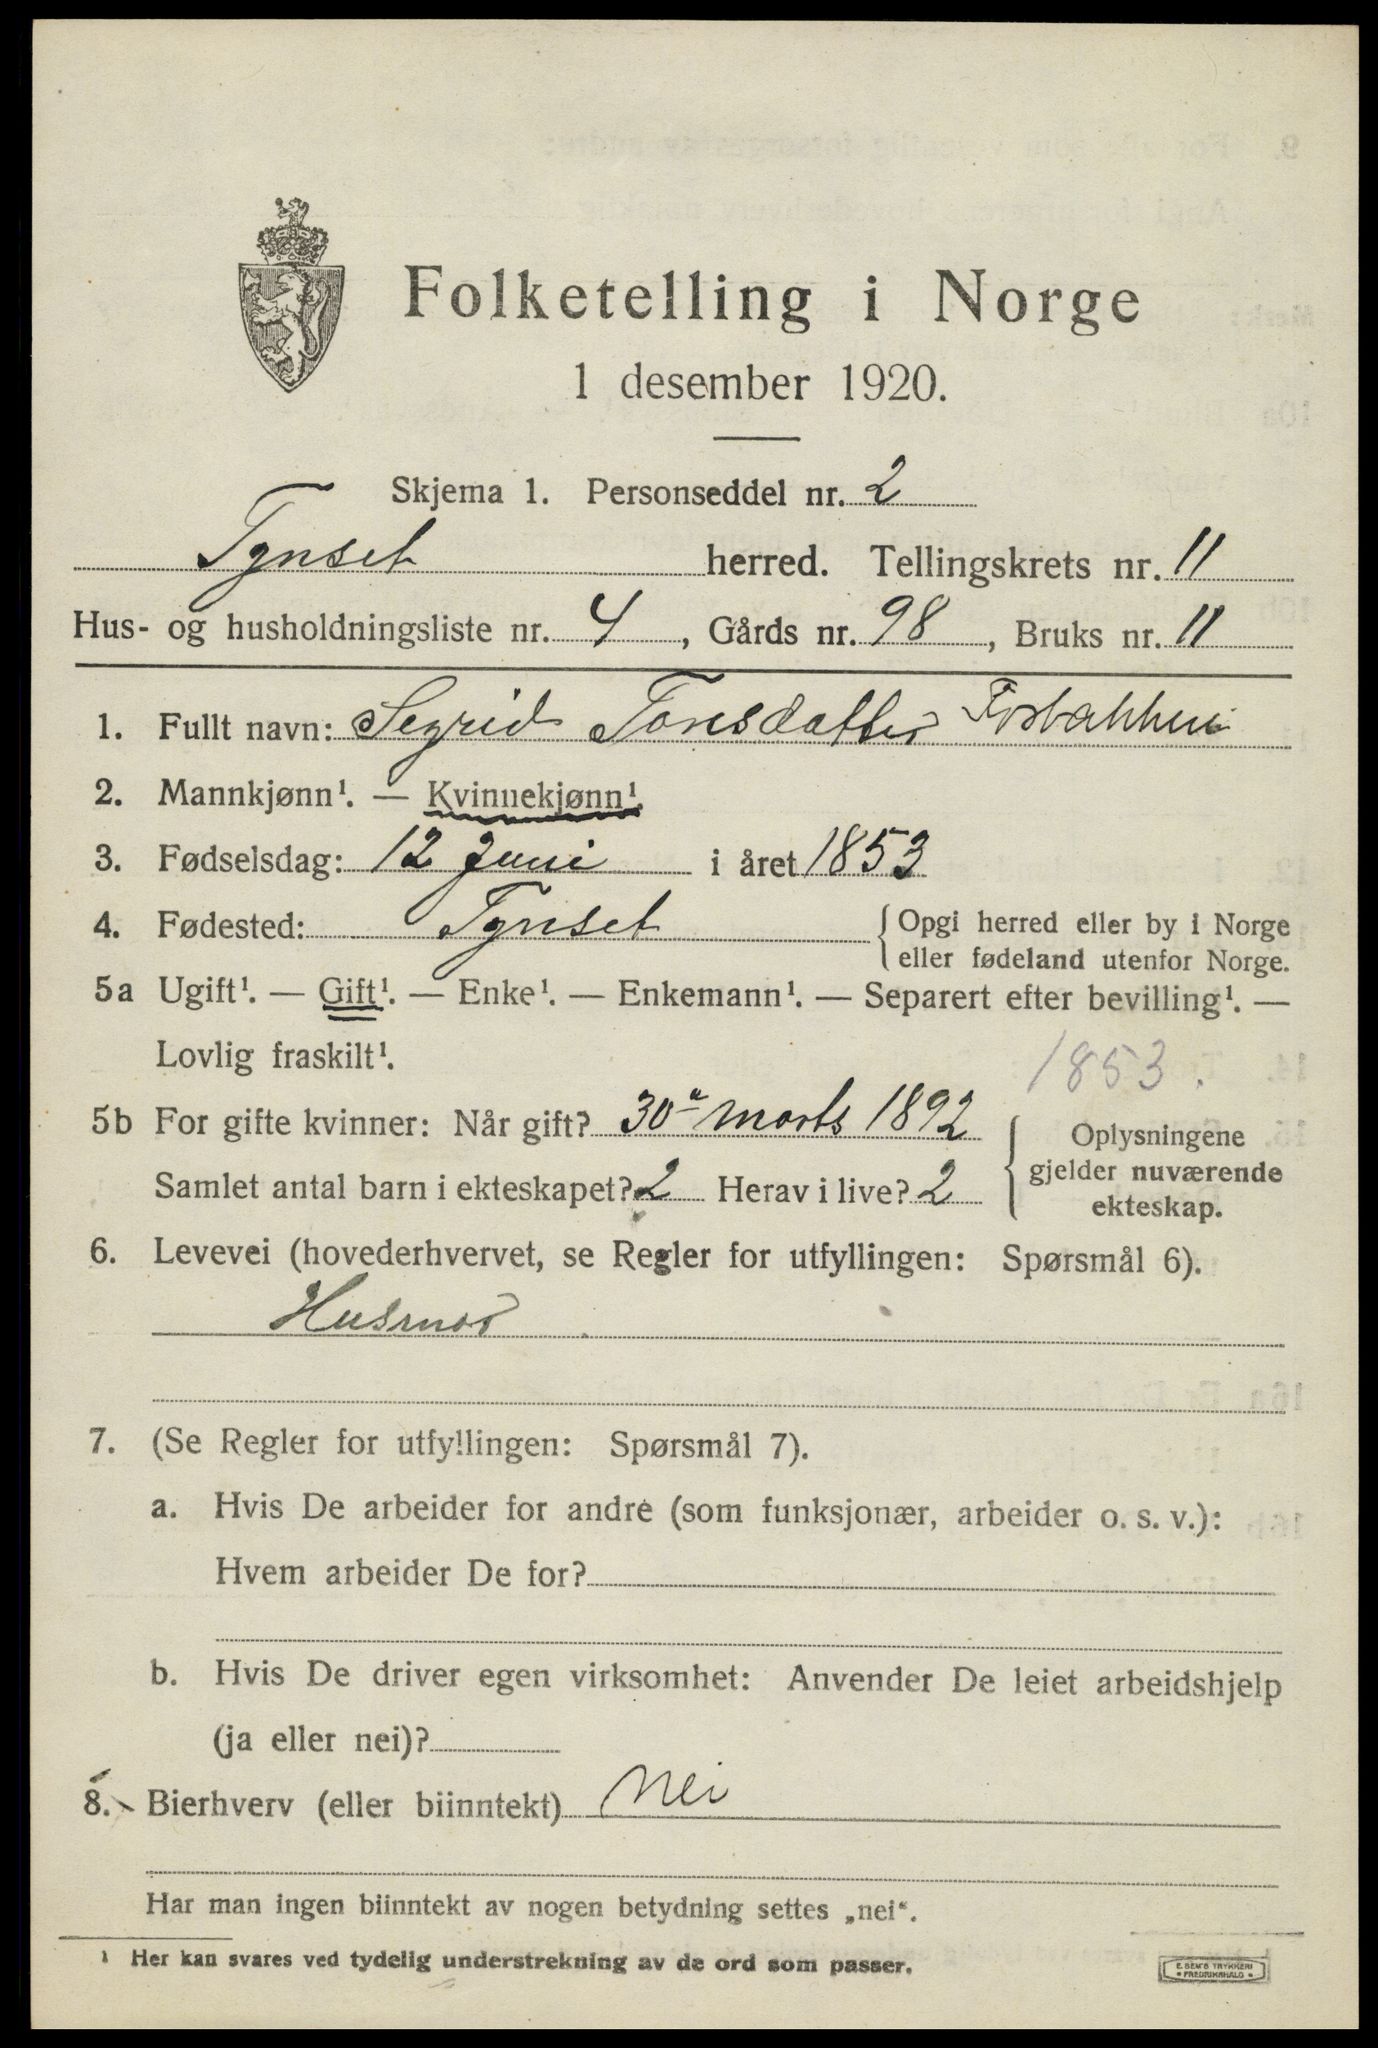 Folketelling i Norge
1 desember 1920.
Skjema 1. Personseddel nr. 2
Tynset herred. Tellingskrets nr. 11
Hus- og husholdningsliste nr. 4, Gårds nr. 98, Bruks nr. 11
1. Fullt navn: Segrid Toresdatter
2. Mannkjønn¹. — Kvinnekjønn¹.
3. Fødselsdag: 12 Juni i året 1853
4. Fødested: Tynset { Opgi herred eller by i Norge
eller fødeland utenfor Norge.
5a Ugift¹. — Gift¹. — Enke¹. — Enkemann¹. — Separert efter bevilling¹. —
Lovlig fraskilt¹.
1853.
5b For gifte kvinner: Når gift? 30 marts 1892
Samlet antal barn i ekteskapet? 2 Herav i live? 2
{ Oplysningene
gjelder nuværende
ekteskap.
6. Levevei (hovederhvervet, se Regler for utfyllingen: Spørsmål 6).
Husmor
7. (Se Regler for utfyllingen: Spørsmål 7).
a. Hvis De arbeider for andre (som funksjonær, arbeider o. s. v.):
Hvem arbeider De for?
b. Hvis De driver egen virksomhet: Anvender De leiet arbeidshjelp
(ja eller nei)?
8. Bierhverv (eller biinntekt) Nei
Har man ingen biinntekt av nogen betydning settes „nei“.
¹ Her kan svares ved tydelig understrekning av de ord som passer.
E. SEM'S TRYKKERI
• FREDRIKSHALD •